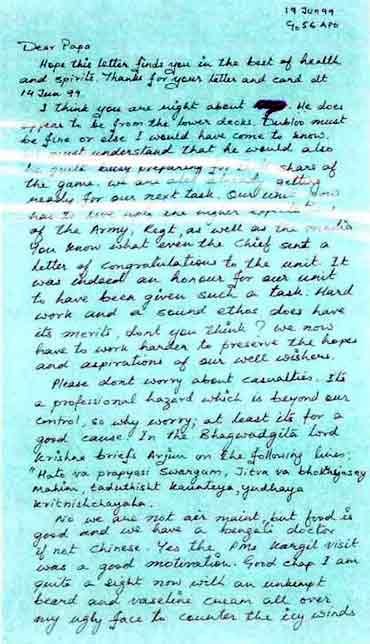 19 JUN 99
C/o 56 APO
Dear Papa
Hope this letter finds you in the best of health
and spirits. Thanks for your letter and card dt
14 Jun 99
I think you are right about . He does
appear to be from the lower decks. Dubloo must
be fine or else I would have come to know.
must understand that he would also
be quite busy preparing for share of
the game. We are also getting
ready for our next task. Our unit now
has to live upto the higher
of the Army, Regt, as well as the media
You know what even the Chief sent a
letter of congratulations to the unit. It
was indeed an honour for our unit
to have been given such a task. Hard
work and a sound ethos does have
its merits, dont you think? We now
have to work harder to preserve the hopes
and aspirations of our well wishers.
Please dont worry about casualties. Its
a professional hazard which is beyond our
control, so why worry, at least its for a
good cause. In the Bhagwadgita Lord
Krishna briefs Arjun on the following lines:
"Hato va prapyasi Swargum, Jitva va bhokshyasey
Mahim, taduthisht Kaunteya, yudhaya
kritnishchayaha.
No we are not air maint, but food is
good and we have a bengali doctor
if not Chinese. Yes the PMs Kargil visit
was a good motivation. Good chap I am
quite a sight now with an unkempt
beard and vaseline cream all over
my ugly face to counter the icy winds